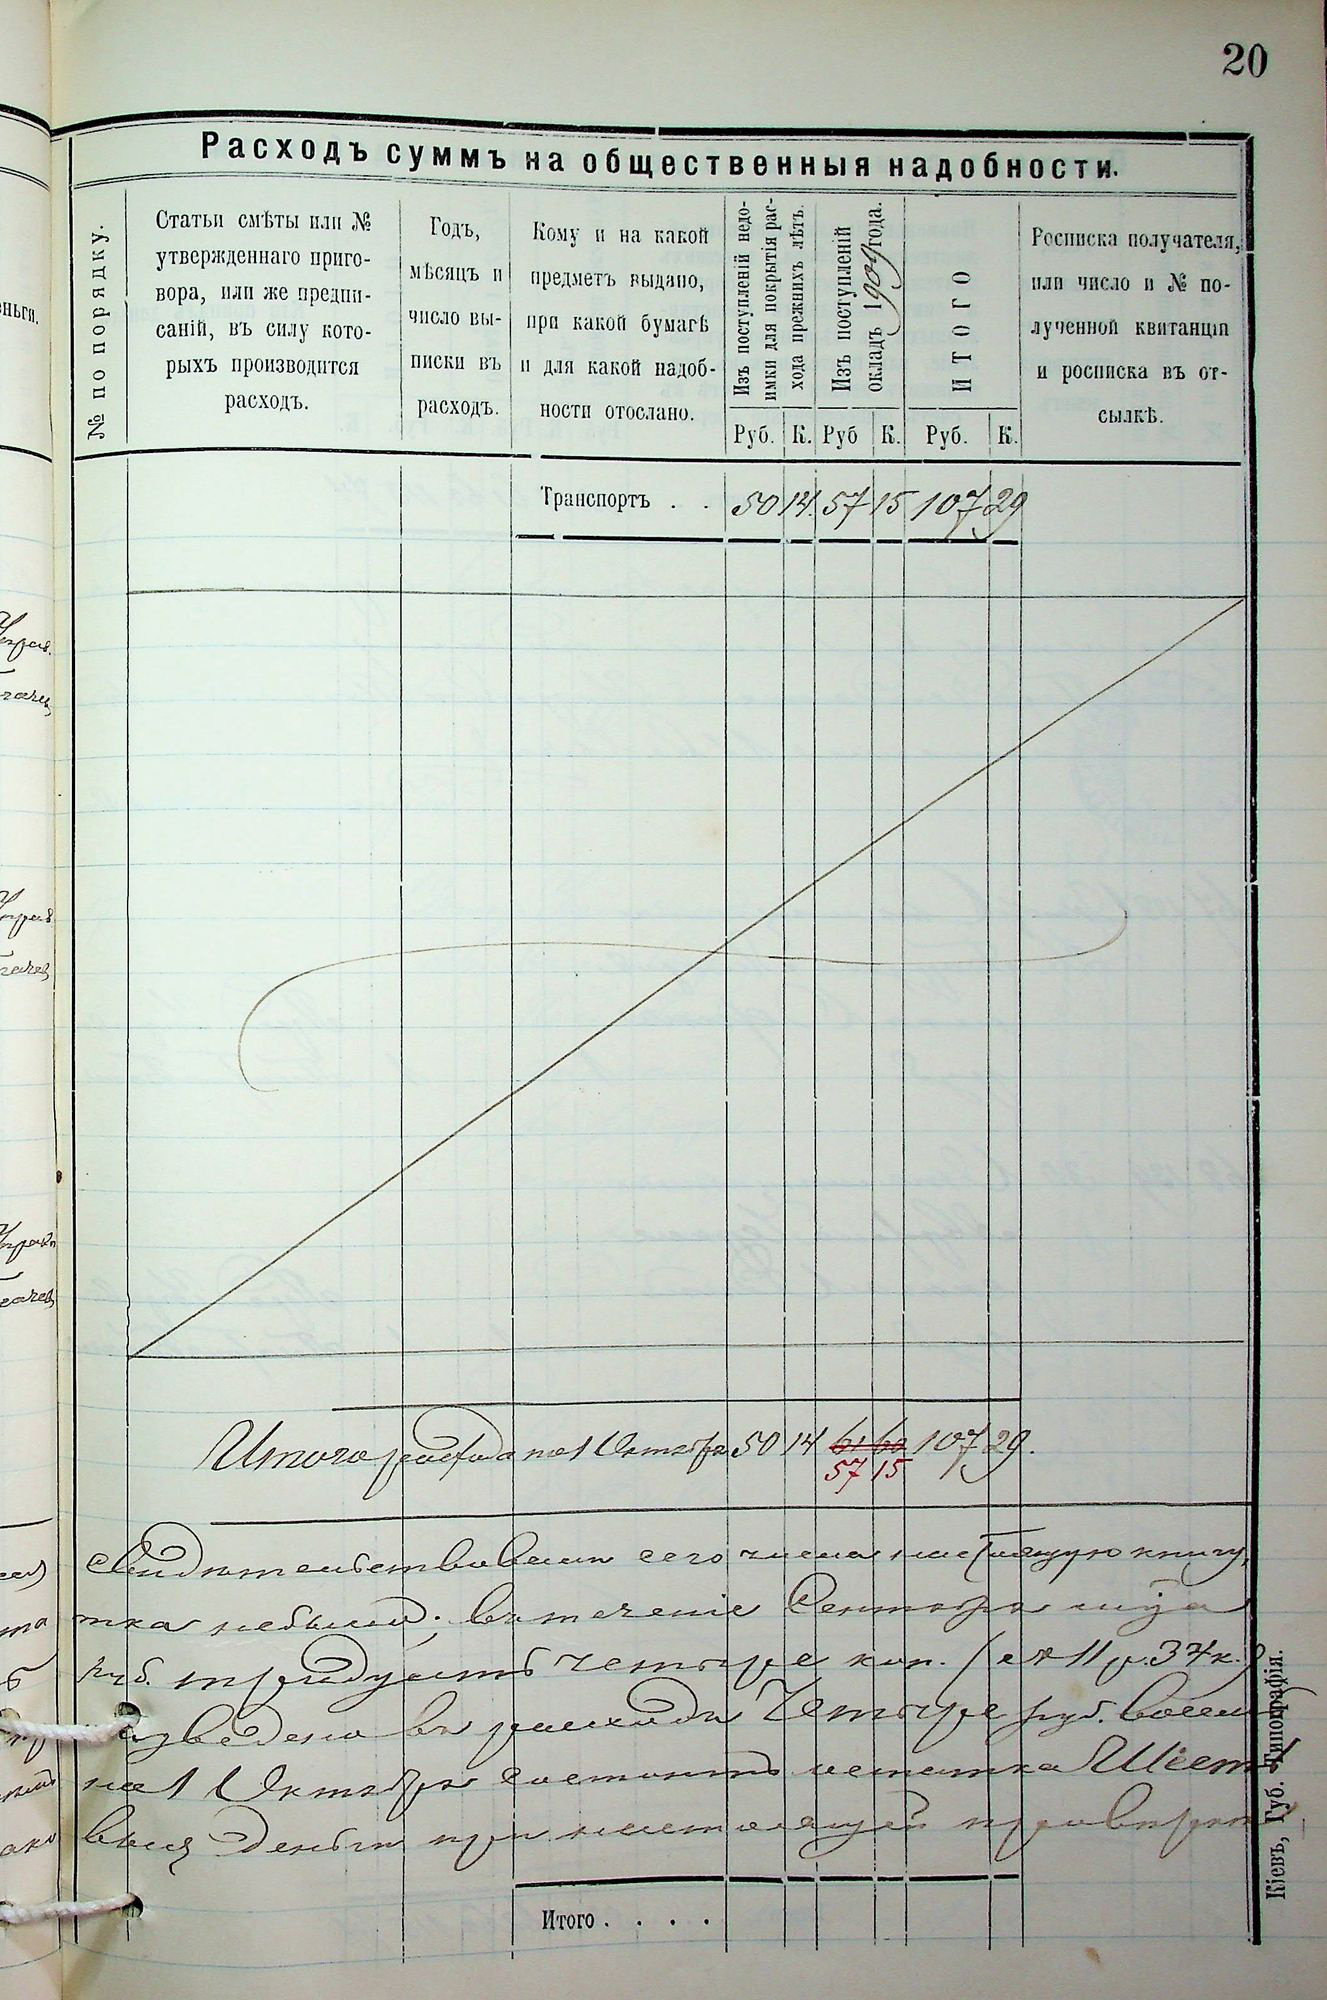 20
Расходъ суммъ на общественныя надобности.
№ по порядку.
Статьи смѣты или №
утвержденнаго приго-
вора, или же предпи-
саній, въ силу кото-
рыхъ производится
расходъ.
Годъ,
мѣсяцъ и
число вы-
писки въ
расходъ.
Кому и на какой
предметъ выдано,
при какой бумагѣ
и для какой надоб-
ности отослано.
Изъ поступленій недо-
имки для покрытія рас-
хода прежнихъ лѣтъ.
Изъ поступленій
окладъ 1909 года.
ИТОГО
Росписка получателя,
или число и № по-
лученной квитанціи
и росписка въ от-
сылкѣ.
Руб. К. Руб К. Руб. К.
Транспортъ . . 50 14 57 15 107 29
Итого расхода по 1 Октября 50 14 61 60 107 29.
57 15
Свидѣтельствовали сего числа настоящую книгу,
тка небыло; въ теченіе Сентября
руб. тридцать четыре коп. (11 р. 34 к.)
изведено въ расходъ Четыре руб. восем
на 1 Октября состоитъ остатка Шест
выя деньги при настоящей провѣркѣ
Итого . . . .
Кіевъ, Губ. Типографія.